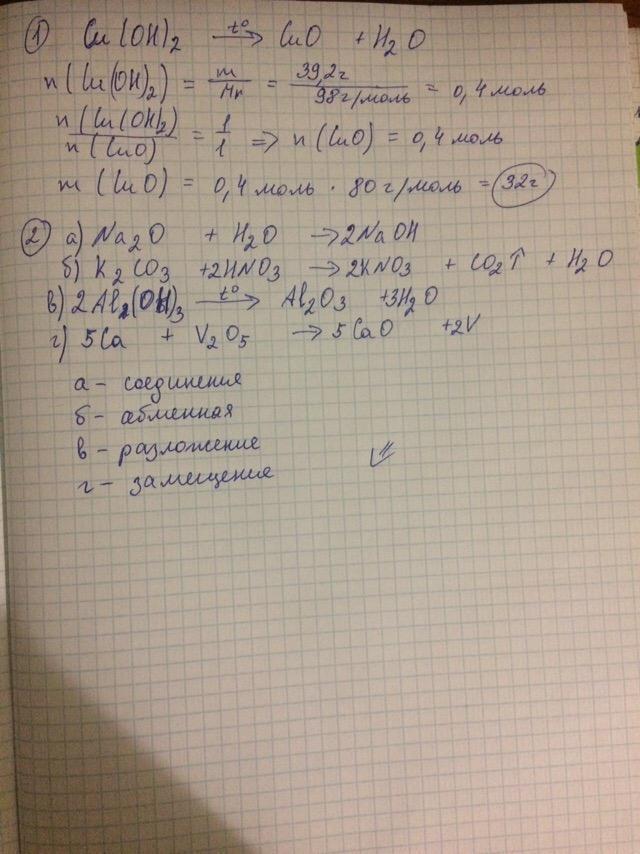 1) Cu(OH)2 t°→ CuO + H2O
n(Cu(OH)2) = m/Mr = 39,2г/98г/моль = 0,4 моль
n(Cu(OH)2)/n(CuO) = 1/1 => n(CuO) = 0,4 моль
m(CuO) = 0,4 моль · 80 г/моль = 32г
2) а) Na2O + H2O → 2NaOH
б) K2CO3 + 2HNO3 → 2KNO3 + CO2↑ + H2O
в) 2Al2(OH)3 t°→ Al2O3 + 3H2O
г) 5Ca + V2O5 → 5CaO + 2V
а - соединения
б - абменная
в - разложение
г - замещение